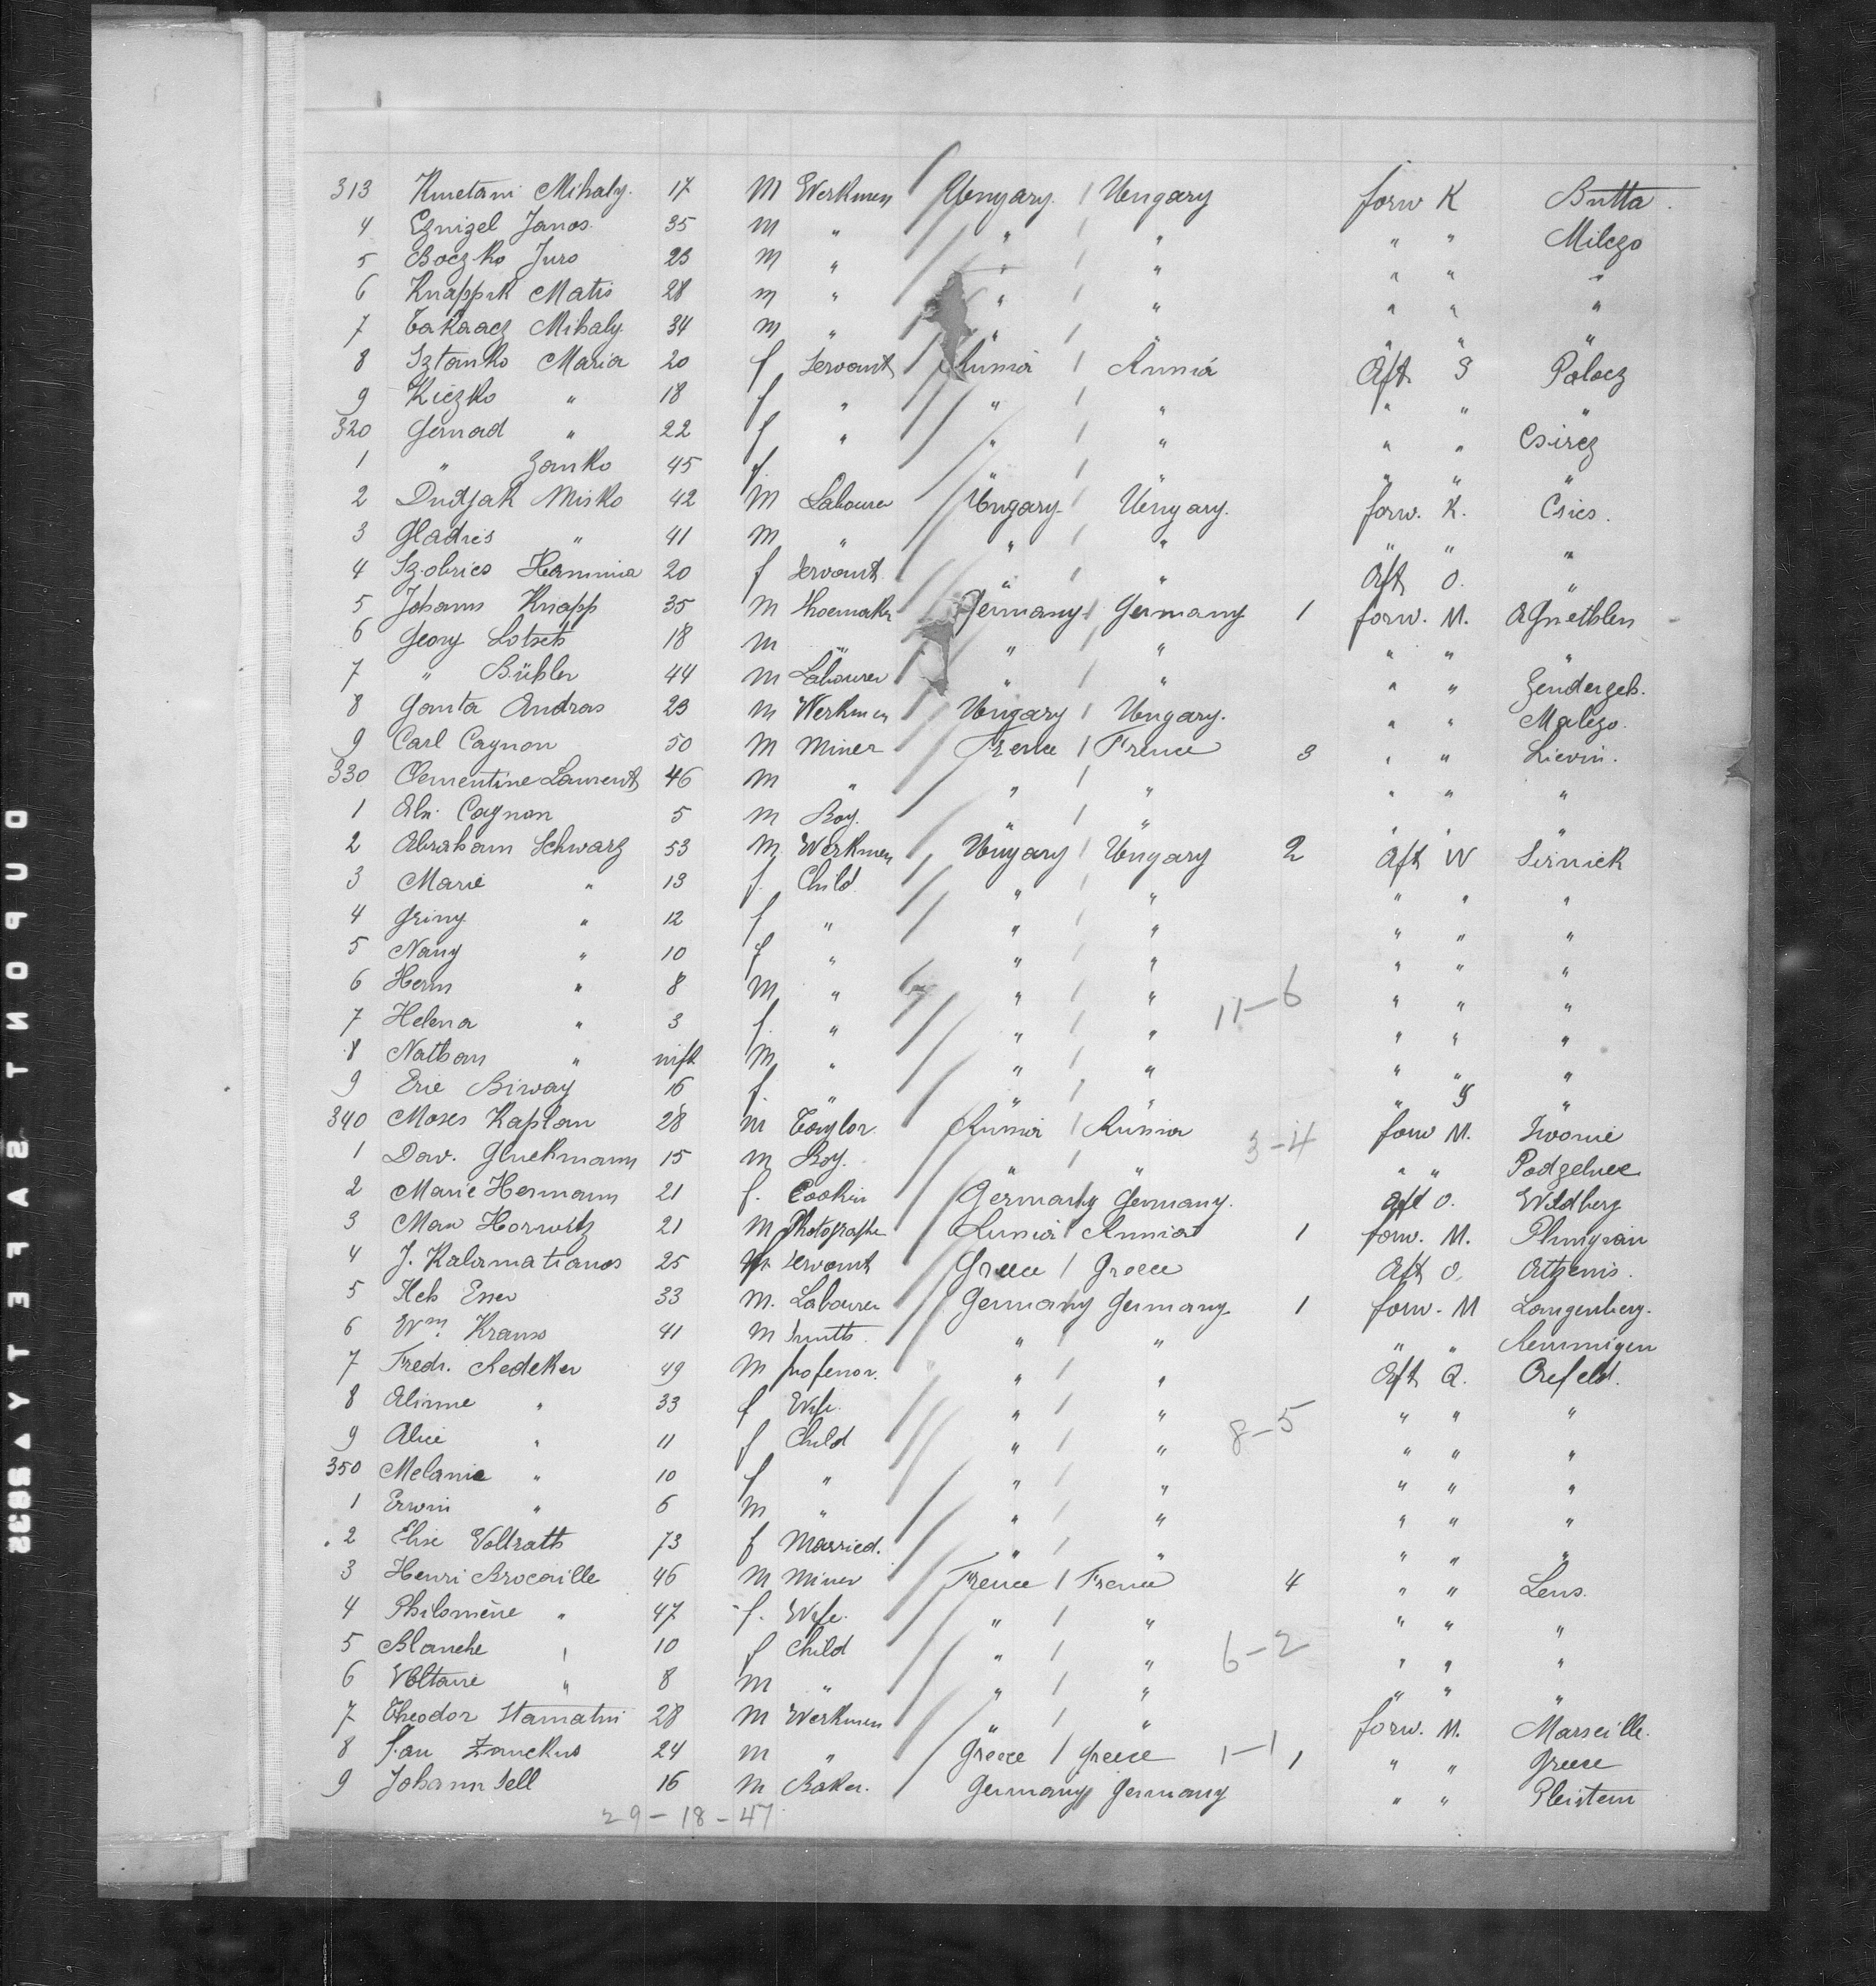 313 Kmetani Mihaly. 17 M Werkmen Ungary / Ungary forw K Butta.
4 Eznigel Janos. 35 M " " / " " " Milczo
5 Boczko Juro 23 M " " / " " " "
6 Knappik Matis 28 m " " / " " " "
7 Takaacz Mihaly. 34 M " " / " " " "
8 Sztanko Maria 20 f Servant Russia / Russia Aft S Palocz
9 Kiczko " 18 f " " / " " " "
320 Gernad " 22 f " " / " " " Csircz
1 " Zanko 45 f. / " " "
2 Dudjak Misko 42 M Labourer Ungary / Ungary. forw. K. Csics.
3 Gladies " 41 M " " / " " " "
4 Szobrics Hermina 20 f Servant " / " Aft O. "
5 Johann Knapp 35 M Shoemaker Germany / Germany 1 forw. M. Agnethlen
6 Georg Lotsch 18 M " " / " " " "
7 " Bühler 44 M Labourer " / " " " Zendergeb.
8 Ganta Andras 23 M Werkmen Ungary / Ungary. " " Malczo.
9 Carl Cagnon 50 M Miner France / France 3 " " Lievin.
330 Clementine Laurent 46 M " " / " " " "
1 Cagnon 5 M Boy. " / " " " "
2 Abraham Schwarz 53 M. Werkmen Ungary / Ungary 2 Aft W Sirnick
3 Marie " 13 f. Child " / " " " "
4 Griny. " 12 f " " / " " " "
5 Nany " 10 f " " / " " " "
6 Herm " 8 M " " / " " " "
11-6
7 Helena " 3 f. " " / " " " "
8 Nathan " inft M " " / " " " "
9 Erie Birway 16 f. " " / " " S "
340 Moses Kaplan 28 M Taylor. Russia / Russia forw M. Iwonie
3-4
1 Dav. Gluckmann 15 M Boy. " / " " " Podzelwe
2 Marie Hermann 21 f. Cookin Germany Germany. Aft O. Wildberg
3 Max Horwitz 21 M Photographer Russia / Russia 1 forw. M. Plungian
4 J. Kalamatianos 25 M Servant Greece / Greece Aft O. Athenis.
5 Hch Esser 33 M. Labourer Germany Germany 1 forw. M Langenberg.
6 Wm Kranss 41 M Smith. " / " " " Remmigen
7 Fredr. Redeker 49 M professor. " / " Aft Q. Crefeld.
8 Alinne " 33 f Wife. " / " " " "
8-5
9 Alice " 11 f Child " / " " " "
350 Melanie " 10 f " " / " " " "
1 Erwin " 6 M " " / " " " "
2 Elise Vollrath 73 f Married. " / " " " "
3 Henri Brocaille 46 M Miner France / France 4 " " Lens.
4 Philomène " 47 f. Wife. " / " " " "
5 Blanche " 10 f Child " / " " " "
6-2
6 Voltaire " 8 M " " / " " " "
7 Theodor Stamatin 28 M Werkmen " / " forw. M. Marseille.
8 Jan Zanckus 24 M " Greece / Greece 1-1 1 " " Greese
9 Johann Sell 16 M Baker. Germany Germany " " Pleistem
29-18-47
DUPONT SAFETY ▲ 5532